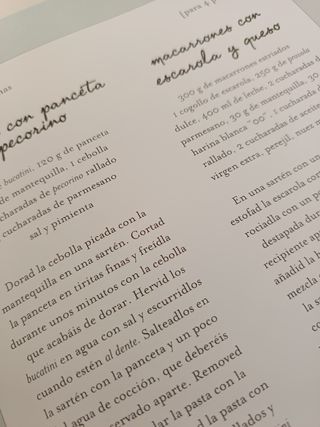 con panceta
pecorino
bucatini, 120 g de panceta
de mantequilla, 1 cebolla
charadas de pecorino rallado
cucharadas de parmesano
sal y pimienta
Dorad la cebolla picada con la
mantequilla en una sartén. Cortad
la panceta en tiritas finas y freídla
durante unos minutos con la cebolla
que acabáis de dorar. Hervid los
bucatini en agua con sal y escurridlos
cuando estén al dente. Salteadlos en
la sartén con la panceta y un poco
agua de cocción, que deberéis
servado aparte. Removed
lar la pasta con la
[para 4 p
macarrones con
escarola y queso
300 g de macarrones estriados
1 cogollo de escarola, 250 g de
dulce, 400 ml de leche, 2 cucharadas d
parmesano, 30 g de mantequilla, 30
harina blanca "00", 1 cucharada d
rallado, 2 cucharadas de aceite
virgen extra, perejil, nuez m
En una sartén con un
estofad la escarola con
rociadla con un po
destapada dura
recipiente ap
añadid la h
mezcla
la s
co